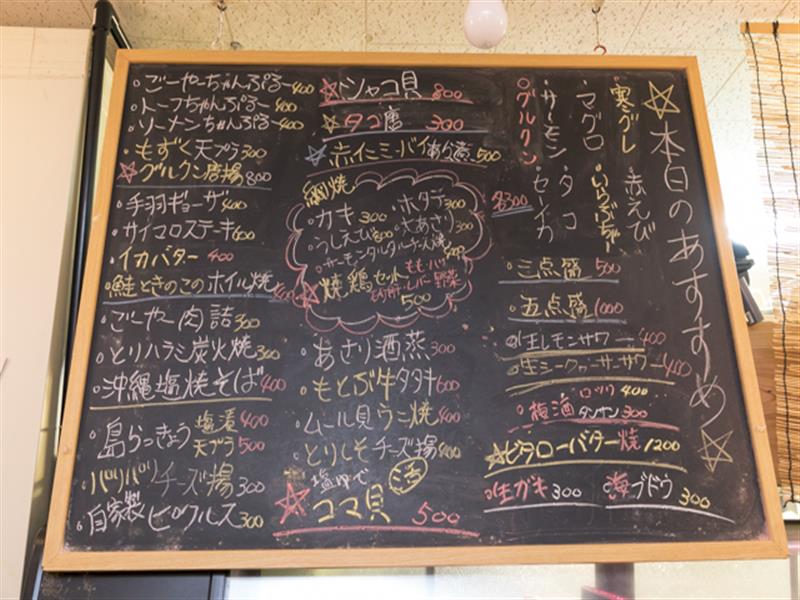 ☆本日のおすすめ☆
寒グレ
マグロ
サーモン
グルクン
赤えび
いらぶちゃー
タコ
セーイカ
各300
三点盛 500
五点盛 1000
生レモンサワー 400
生シークヮーサーサワー 400
梅酒 ロック 400
タンサン 300
☆ビタローバター焼 1200
生ガキ 300
海ブドウ 300
☆シャコ貝 800
☆タコ唐 300
☆赤イニミーバイあら煮 500
網焼
・カキ 300
・ホタテ 300
・大あさり 300
・サーモンタルタルチーズ焼
☆焼鶏セット
500
・あさり酒蒸 300
・もとぶ牛タタキ 600
・ムール貝ウニ焼 400
・とりしそチーズ揚 400
☆塩ゆで
コマ貝 活 500
・ごーやーちゃんぷるー 400
・トーフちゃんぷるー 400
・ソーメンちゃんぷるー 400
・もずく天プラ 300
☆グルクン唐揚 800
・手羽ギョーザ 400
・サイコロステーキ 600
・イカバター 400
・鮭ときのこのホイル焼
・ごーやー肉詰 300
・とりハラミ炭火焼 300
・沖縄塩焼そば 400
・島らっきょう 塩漬 400
天プラ 500
・パリパリチーズ揚 300
・自家製ピクルス 300